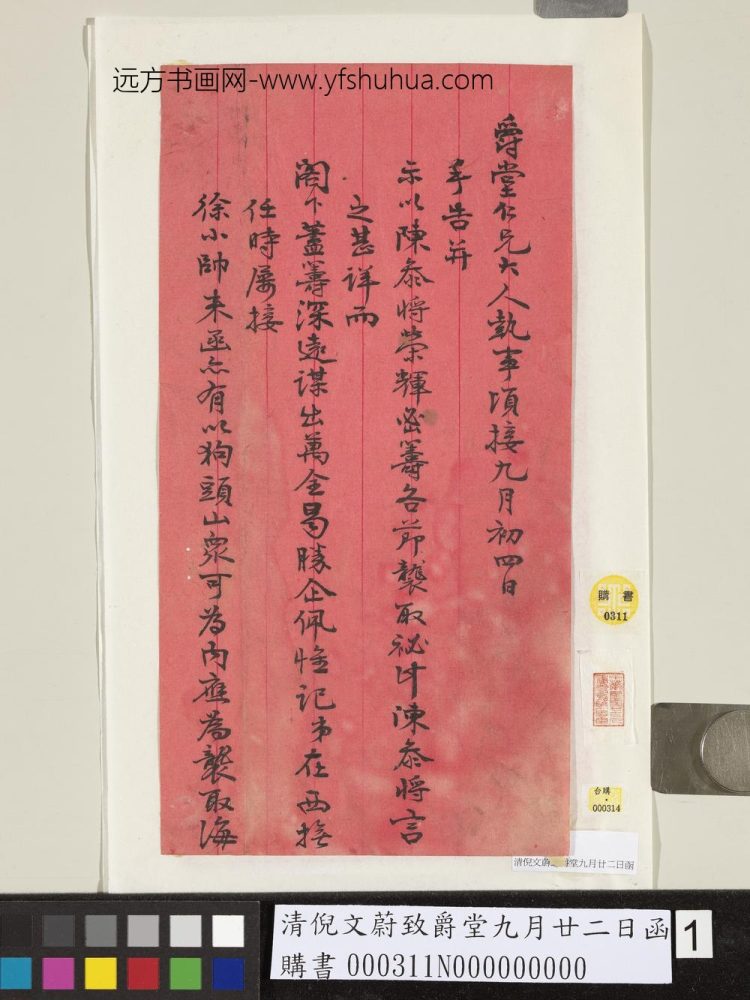 远方书画网-www.yfshuhua.com
爵堂仁兄大人執事頃接九月初四日
手告並
示以陳叅將榮輝密籌各節襲取祕計陳叅將言
之甚詳而
閣下藎籌深遠謀出萬全曷勝企佩惟記弟在西撫
任時屢接
徐小帥来函亦有以狗頭山眾可為内應為襲取海
購書
0311
台購
000314
清倪文蔚致爵堂九月廿二日函
清倪文蔚致爵堂九月廿二日函
購書 000311N000000000
1